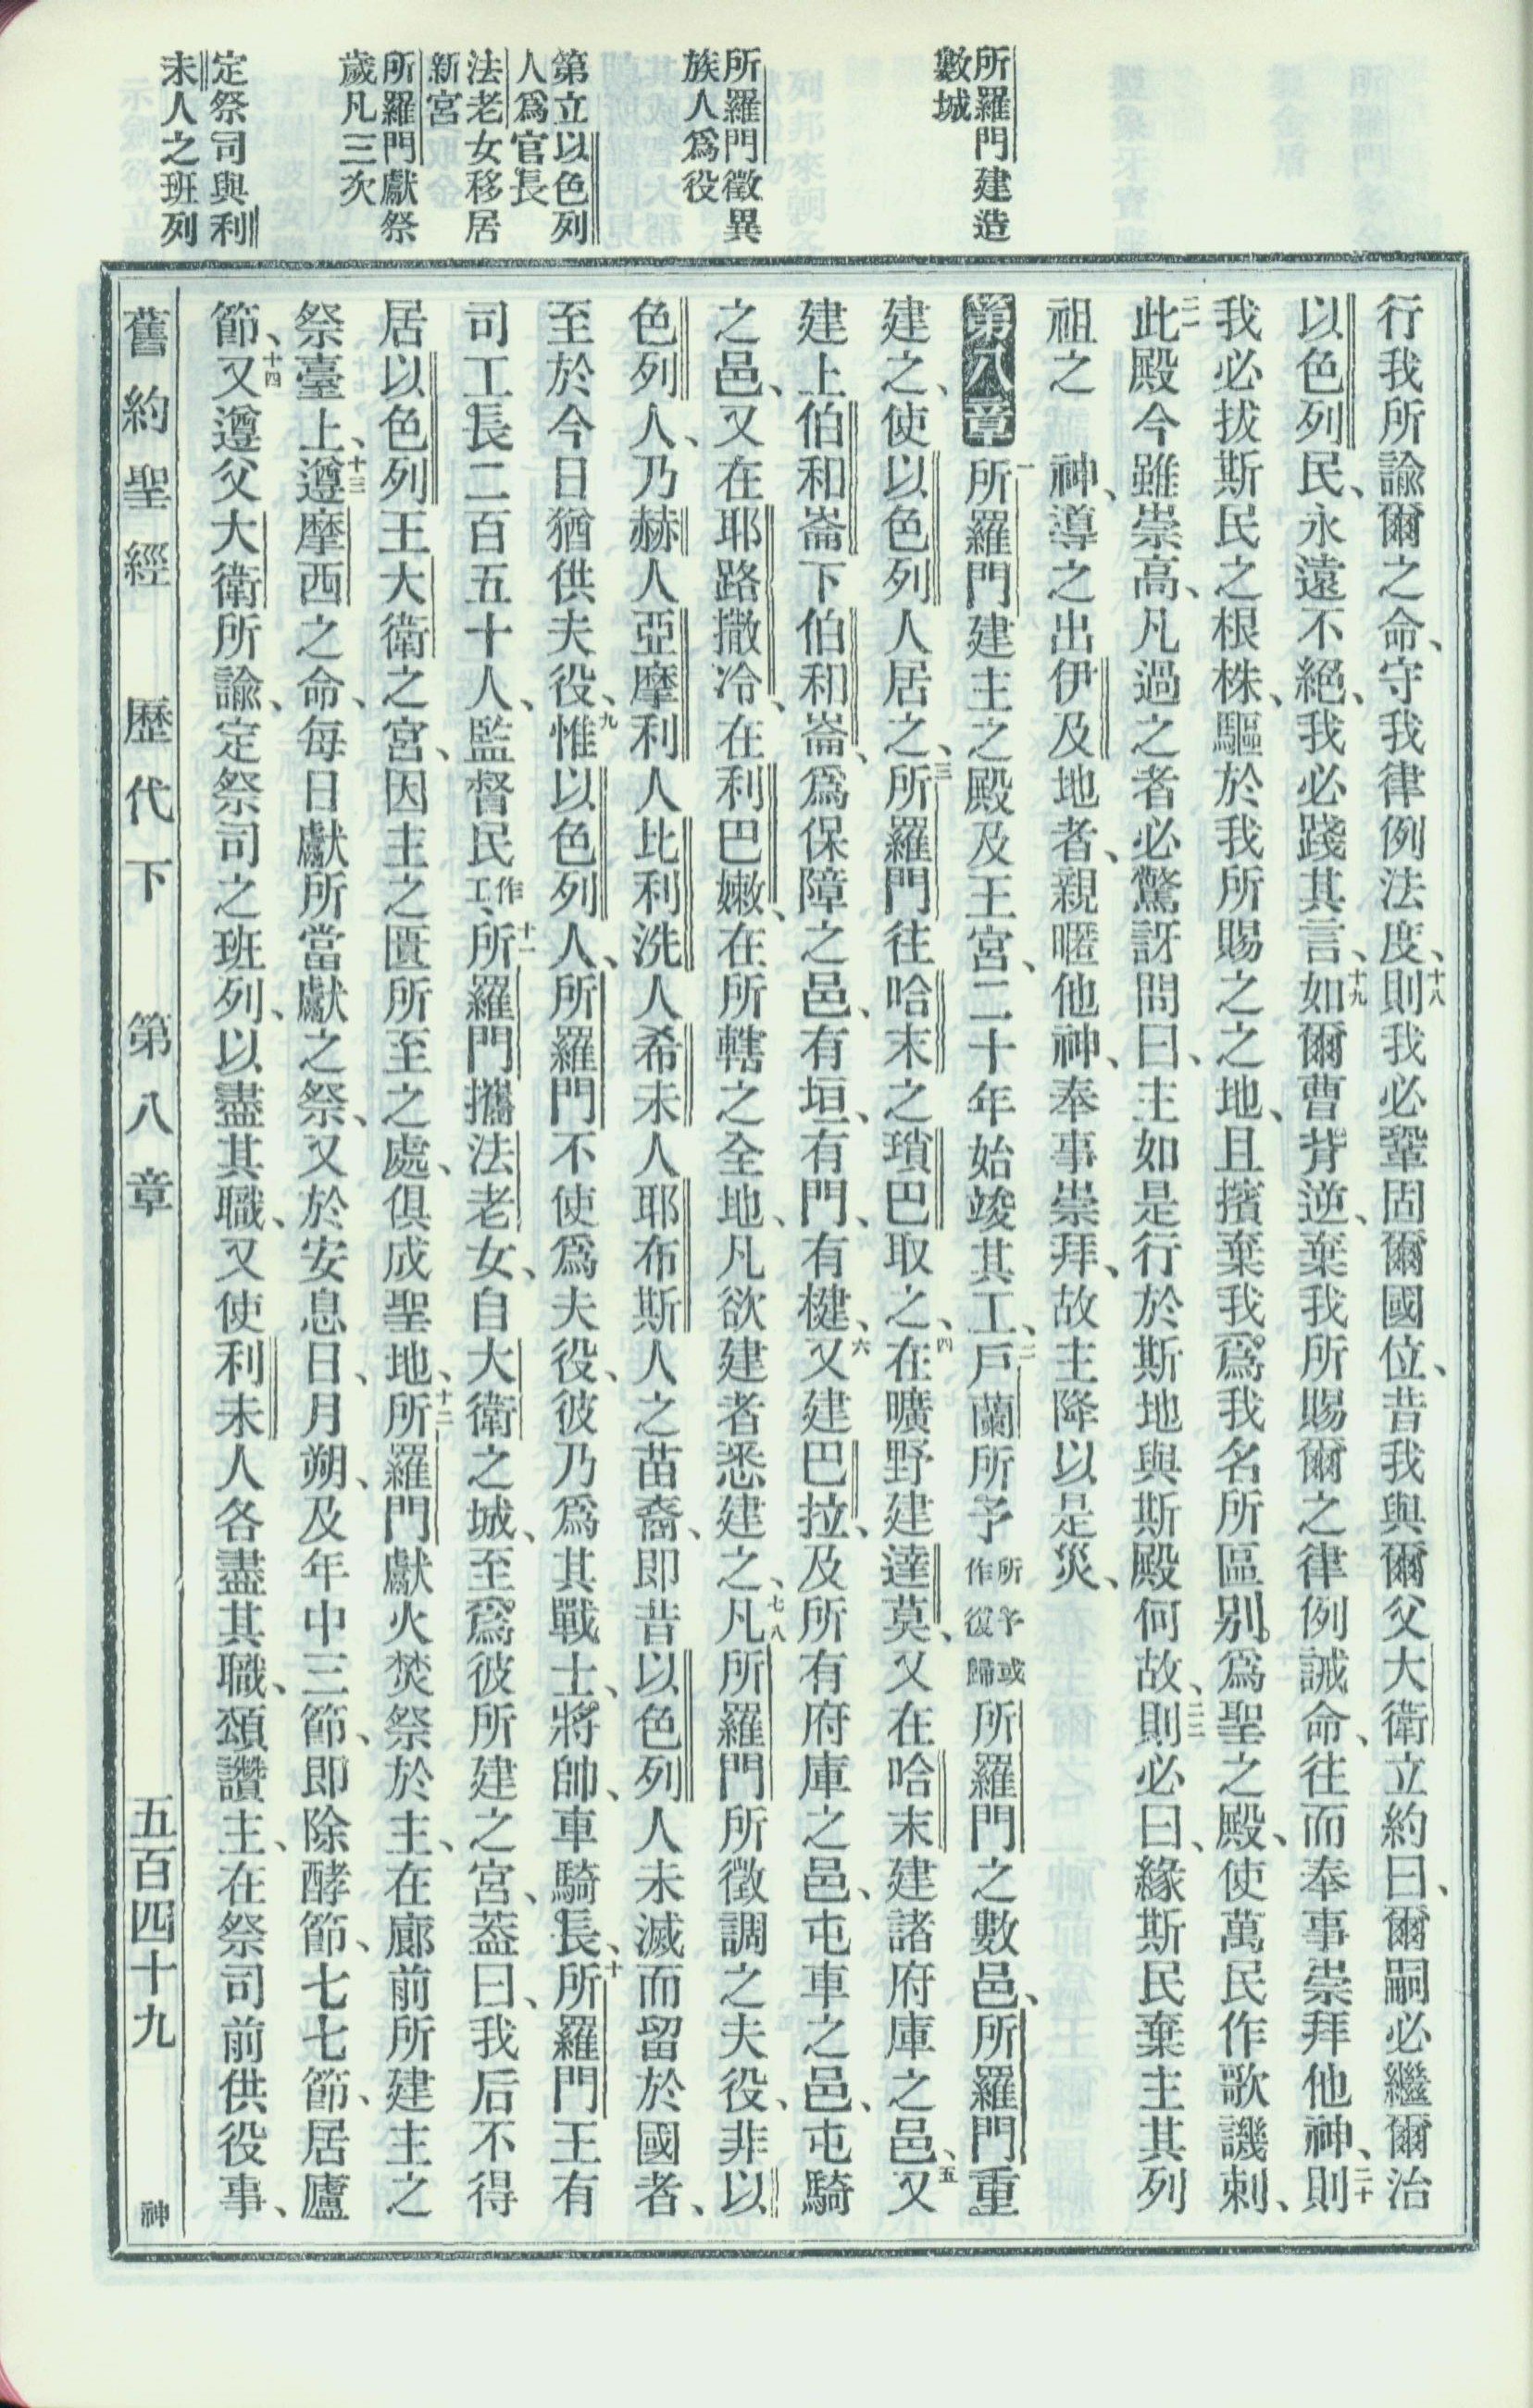 所羅門建造
數城
所羅門徵異
族人爲役
第立以色列
人爲官長
法老女移居
新宮
所羅門獻祭
歲凡三次
定祭司與利
未人之班列
行我所諭爾之命、守我律例法度、十八則我必鞏固爾國位、昔我與爾父大衛立約曰、爾嗣必繼爾治
以色列民、永遠不絕、我必踐其言、十九如爾曹背逆、棄我所賜爾之律例誡命、往而奉事崇拜他神、二十則
我必拔斯民之根株、驅於我所賜之之地、且擯棄我爲我名所區別爲聖之殿、使萬民作歌譏刺、
二一此殿今雖崇高、凡過之者必驚訝問曰、主如是行於斯地與斯殿何故、二二則必曰、緣斯民棄主其列
祖之 神、導之出伊及地者、親暱他神、奉事崇拜、故主降以是災、
第八章 一所羅門建主之殿及王宮、二十年始竣其工、二戶蘭所予所予或作復歸所羅門之數邑、所羅門重
建之、使以色列人居之、三所羅門往哈末之瑣巴取之、四在曠野建達莫、又在哈末建諸府庫之邑、五又
建上伯和崙下伯和崙、爲保障之邑、有垣、有門、有楗、六又建巴拉、及所有府庫之邑、屯車之邑、屯騎
之邑、又在耶路撒冷、在利巴嫩、在所轄之全地、凡欲建者悉建之、七八凡所羅門所徵調之夫役、非以
色列人、乃赫人亞摩利人比利洗人希未人耶布斯人之苗裔、即昔以色列人未滅而留於國者、
至於今日猶供夫役、九惟以色列人、所羅門不使爲夫役、彼乃爲其戰士、將帥、車騎長、十所羅門王有
司工長二百五十人、監督民作工、十一所羅門攜法老女、自大衛之城、至爲彼所建之宮、蓋曰、我后不得
居以色列王大衛之宮、因主之匱所至之處、俱成聖地、十二所羅門獻火焚祭於主、在廊前所建主之
祭臺上、十三遵摩西之命、每日獻所當獻之祭、又於安息日、月朔、及年中三節、即除酵節、七七節、居廬
節、十四又遵父大衛所諭、定祭司之班列、以盡其職、又使利未人各盡其職、頌讚主、在祭司前供役事、
舊約聖經 歷代下 第八章 五百四十九 神